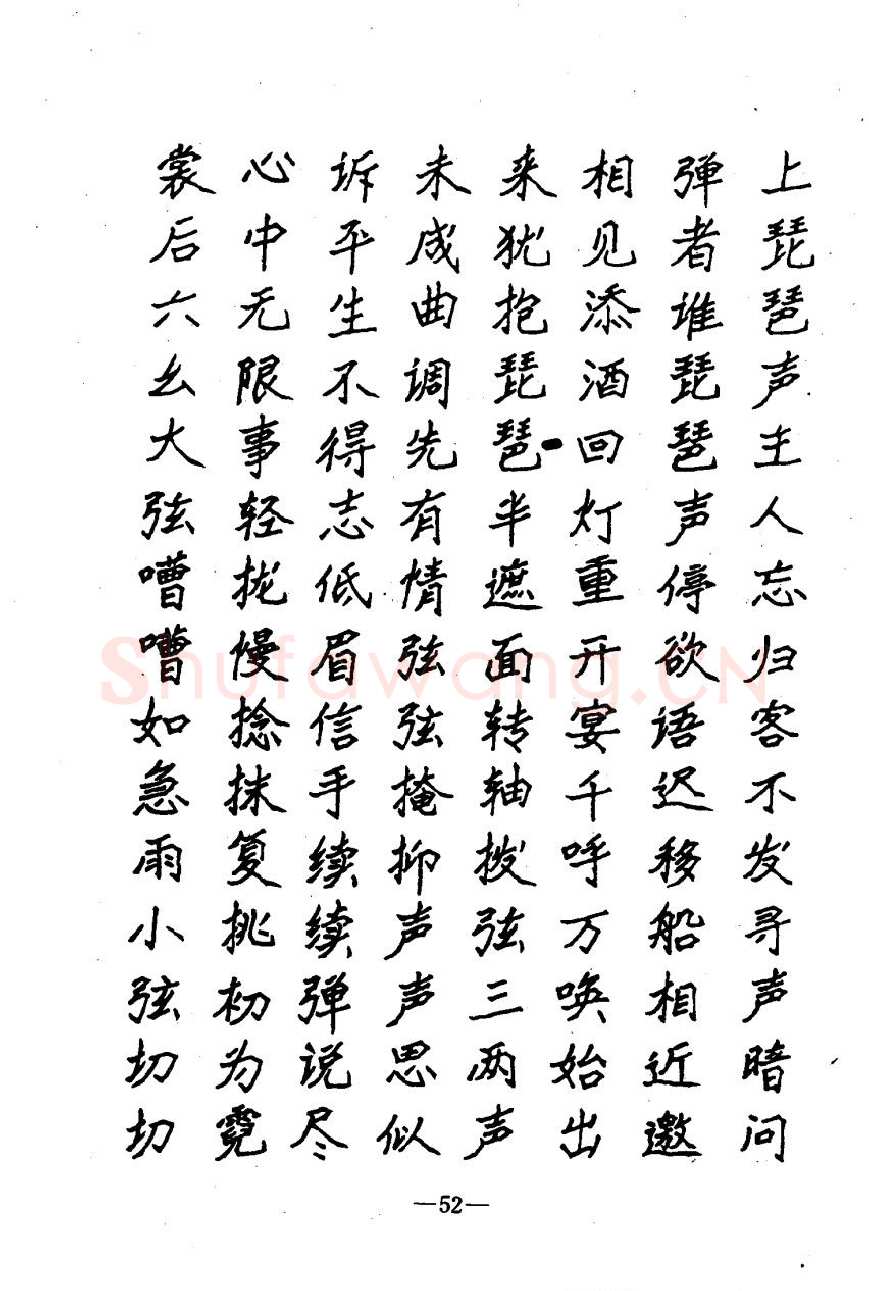 上琵琶声主人忘归客不发寻声暗问
弹者谁琵琶声停欲语迟移船相近邀
相见添酒回灯重开宴千呼万唤始出
来犹抱琵琶半遮面转轴拨弦三两声
未成曲调先有情弦弦掩抑声声思似
诉平生不得志低眉信手续续弹说尽
心中无限事轻拢慢捻抹复挑初为霓
裳后六幺大弦嘈嘈如急雨小弦切切
Shufawang.CN
—52—